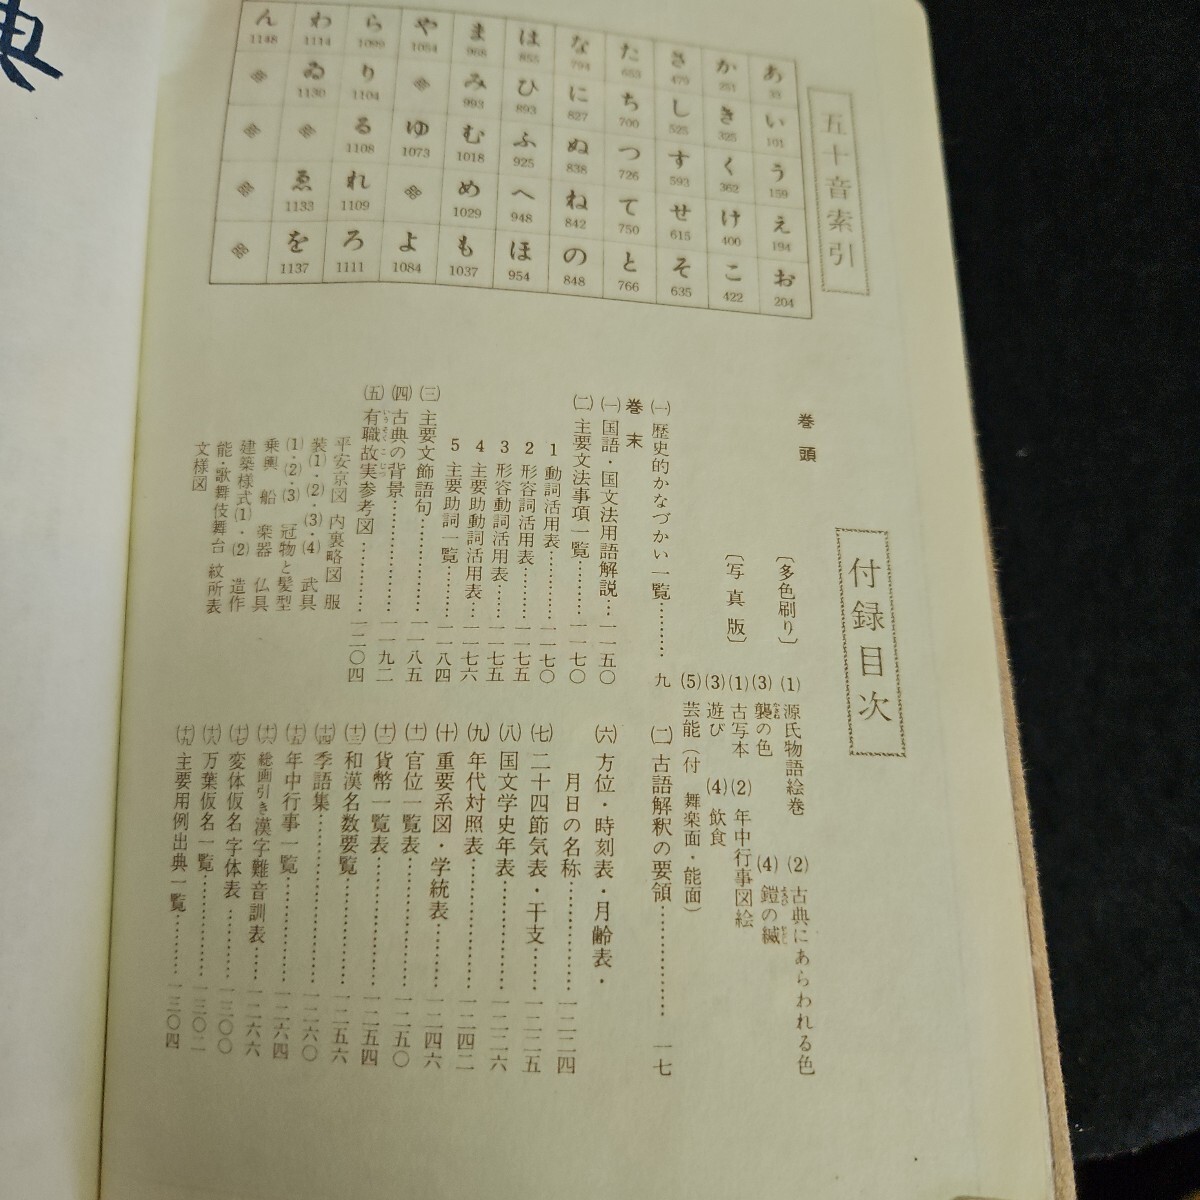 五十音索引
あ 33
い 101
う 159
え 194
お 204
か 251
き 325
く 362
け 400
こ 422
さ 479
し 525
す 593
せ 615
そ 635
た 653
ち 700
つ 726
て 750
と 766
な 794
に 827
ぬ 838
ね 842
の 848
は 855
ひ 893
ふ 925
へ 948
ほ 954
ま 968
み 993
む 1018
め 1029
も 1037
や 1054
ゆ 1073
よ 1084
ら 1099
り 1104
る 1108
れ 1109
ろ 1111
わ 1114
ゐ 1130
ゑ 1133
を 1137
ん 1148
付録目次
巻頭
〔多色刷り〕 (1) 源氏物語絵巻 (2) 古典にあらわれる色
(3) 襲の色 (4) 鎧の縅
〔写真版〕 (1) 古写本 (2) 年中行事図絵
(3) 遊び (4) 飲食
(5) 芸能(付 舞楽面・能面)
㈠ 歴史的かなづかい一覧………九
㈡ 古語解釈の要領…………一七
巻末
㈠ 国語・国文法用語解説…一一五〇
㈡ 主要文法事項一覧………一一七〇
1 動詞活用表………一一七〇
2 形容詞活用表……一一七五
3 形容動詞活用表…一一七五
4 主要助動詞活用表…一一七六
5 主要助詞一覧………一一八四
㈢ 主要文飾語句…………一一八五
㈣ 古典の背景……………一一九二
㈤ 有職故実参考図…………一二〇四
平安京図 内裏略図 服
装(1)・(2)・(3)・(4) 武具
(1)・(2)・(3) 冠物と髪型
乗輿 船 楽器 仏具
建築様式(1)・(2) 造作
能・歌舞伎舞台 紋所表
文様図
㈥ 方位・時刻表・月齢表・
月日の名称…………一二二四
㈦ 二十四節気表・干支……一二二五
㈧ 国文学史年表……………一二二六
㈨ 年代対照表………………一二四二
㈩ 重要系図・学統表………一二四六
(十一) 官位一覧表……………一二五〇
(十二) 貨幣一覧表……………一二五四
(十三) 和漢名数要覧…………一二五六
(十四) 季語集…………………一二六〇
(十五) 年中行事一覧…………一二六四
(十六) 総画引き漢字難音訓表……一二六六
(十七) 変体仮名字体表………一三〇〇
(十八) 万葉仮名一覧…………一三〇二
(十九) 主要用例出典一覧……一三〇四